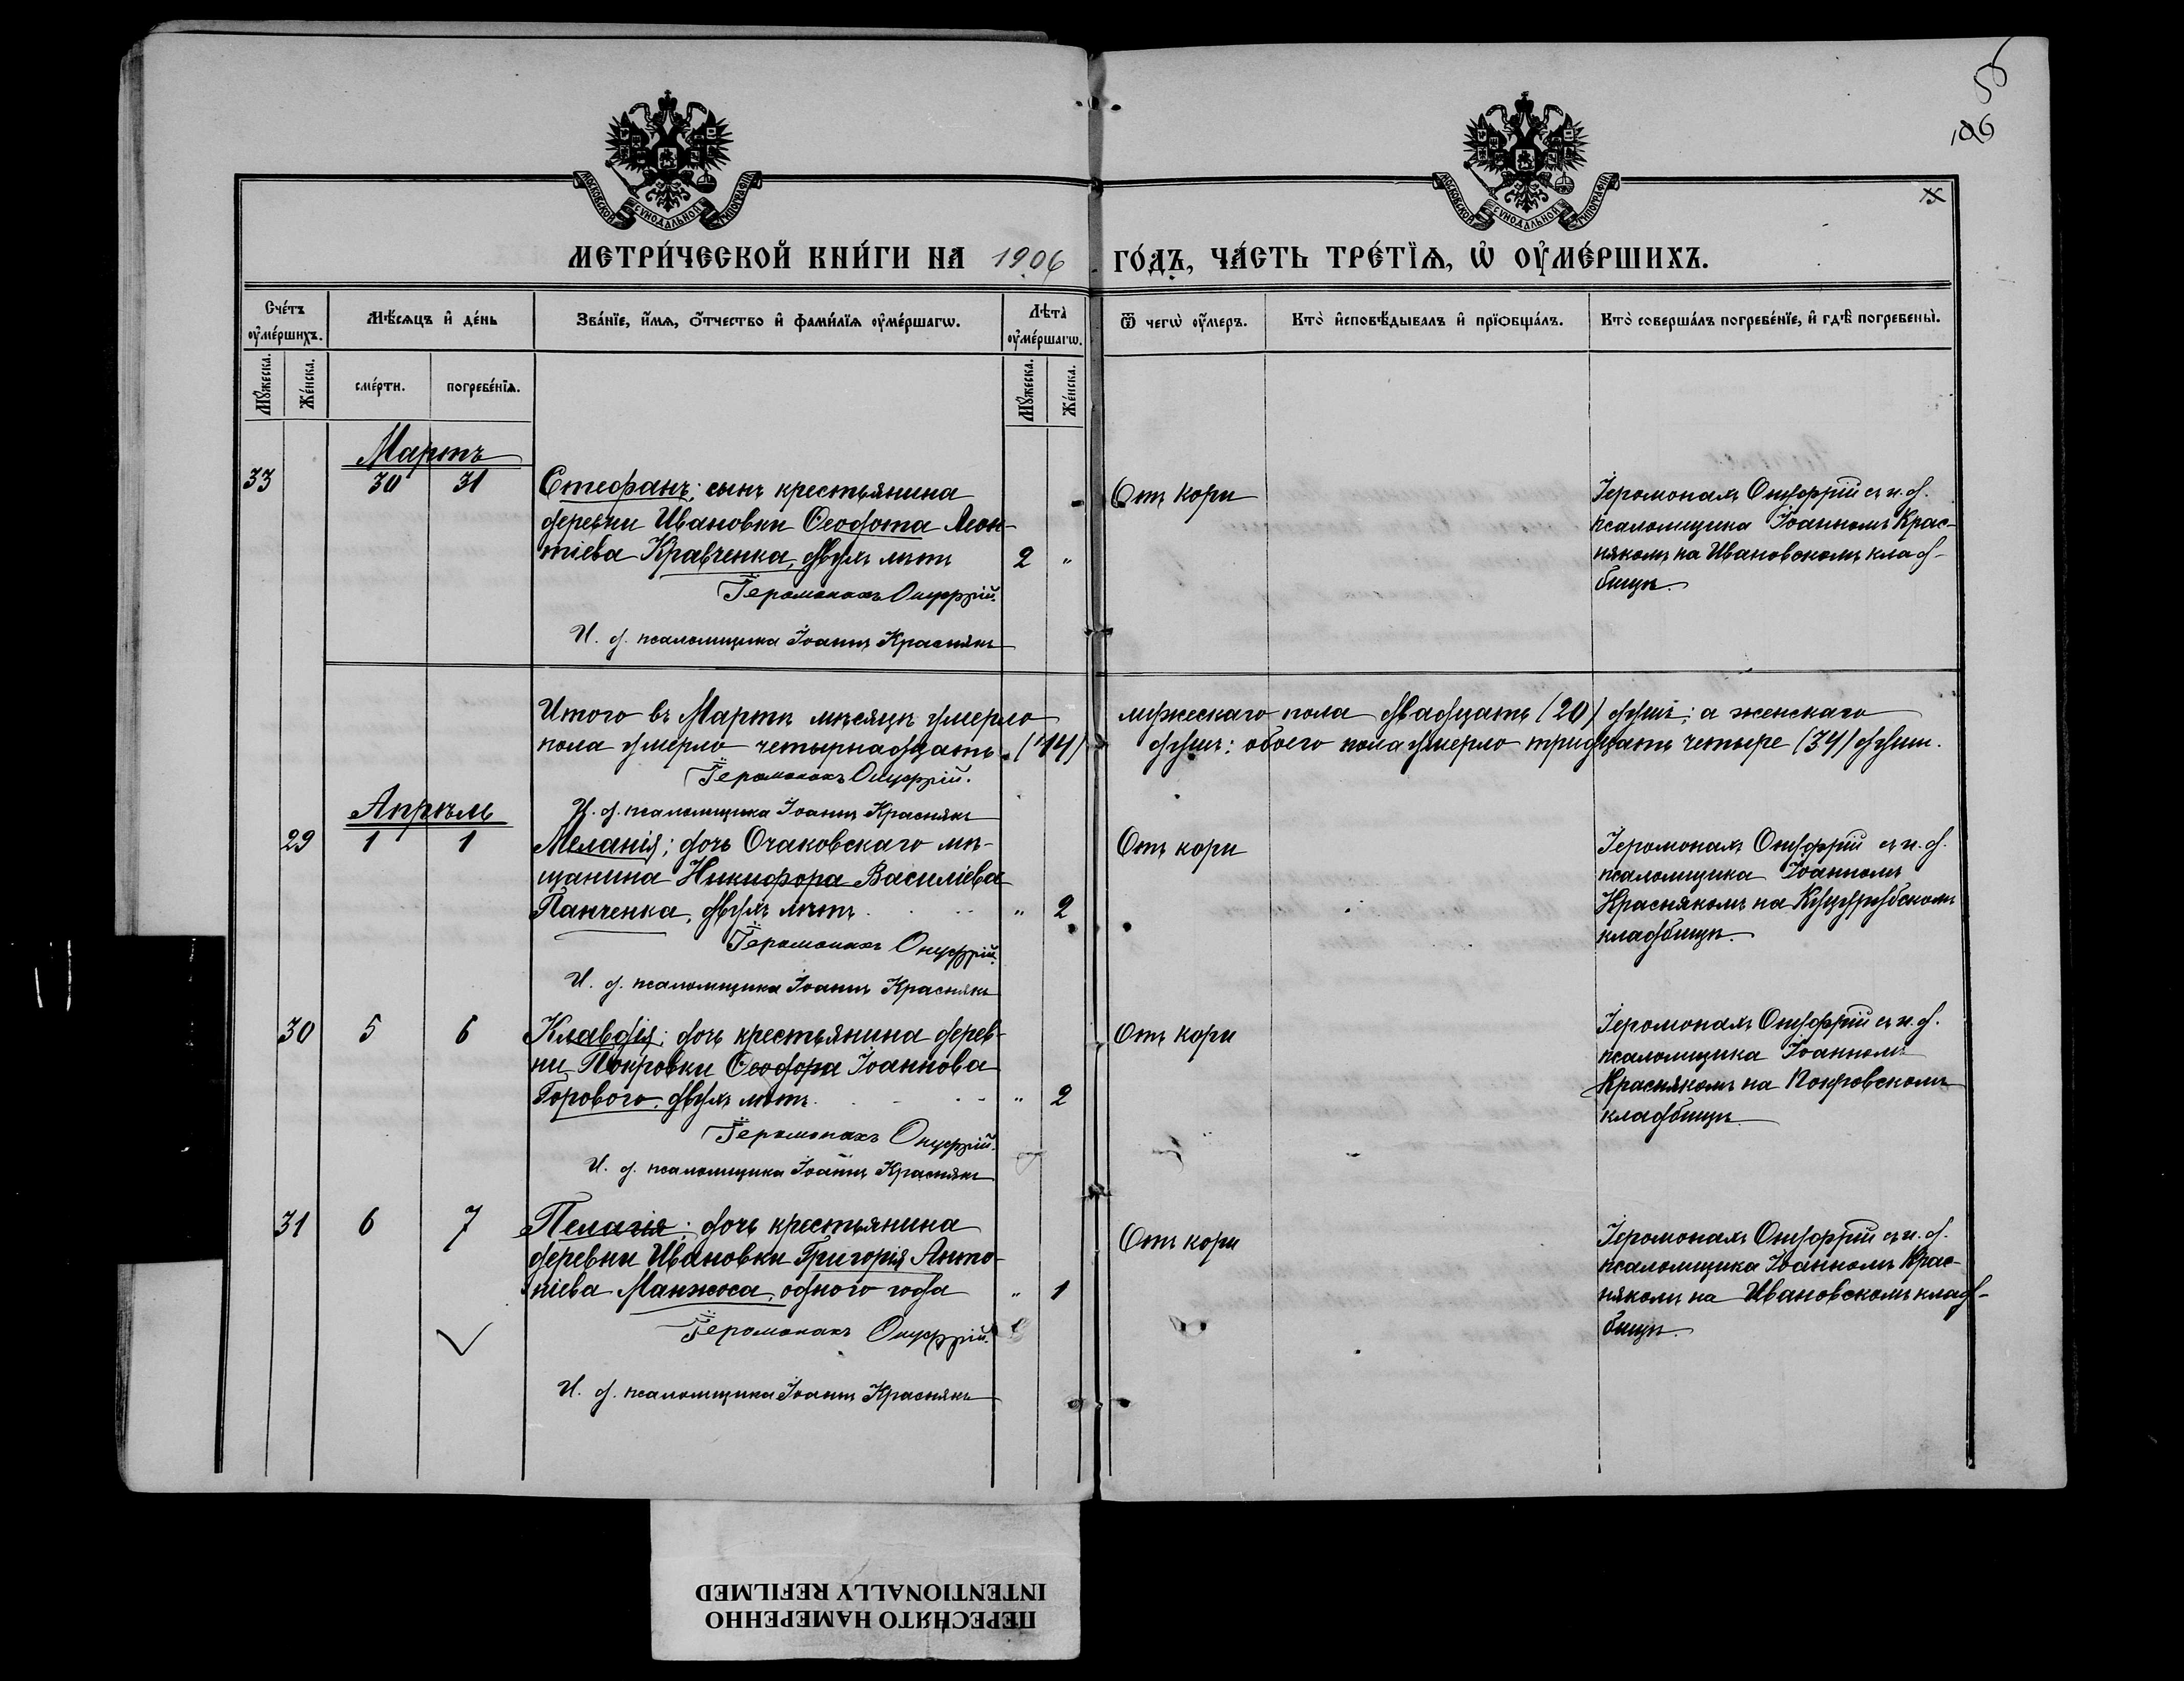 55
106
МОСКОВСКОЙ СУНОДАЛЬНОЙ ТИПОГРАФІИ
МОСКОВСКОЙ СУНОДАЛЬНОЙ ТИПОГРАФІИ
МЕТРИ́ЧЕСКОЙ КНИ́ГИ НА 1906 ГО́ДЪ, ЧА́СТЬ ТРЕ́ТЇѦ, Ѡ҆ ОУ҆МЕ́РШИХЪ.
Сче́тъ оу҆ме́ршихъ.
Мѣ́сѧцъ и҆ де́нь
Зва́нїе, и҆́мѧ, ѻ҆́тчество и҆ фами́лїѧ оу҆ме́ршагѡ.
Лѣ́та оу҆ме́ршагѡ.
Ѿ чегѡ̀ оу҆́меръ.
Кто̀ и҆сповѣ́дывалъ и҆ прїѻбща́лъ.
Кто̀ соверша́лъ погребе́нїе, и҆ гдѣ̀ погребены̀.
Мꙋ́жеска.
Же́нска.
сме́рти.
погребе́нїѧ.
Мꙋ́жеска.
Же́нска.
Мартъ
33 30 31 Стефанъ; сынъ крестьянина
деревни Ивановки Ѳеодота Леон-
тіева Кравченка, двухъ лѣтъ 2 "
Іеромонахъ Онуфрій.
И. д. псаломщика Іоаннъ Краснякъ
Отъ кори
Іеромонахъ Онуфрій съ и. д.
псаломщика Іоанномъ Крас-
някомъ на Ивановскомъ клад-
бищѣ.
Итого въ Мартѣ мѣсяцѣ умерло мужескаго пола двадцать (20) душъ; а женскаго
пола умерло четырнадцать (14) душъ; обоего пола умерло тридцать четыре (34) душъ.
Іеромонахъ Онуфрій.
И. д. псаломщика Іоаннъ Краснякъ
Апрѣль
29 1 1 Меланія; дочь Очаковскаго мѣ-
щанина Никифора Василіева
Панченка, двухъ лѣтъ " 2
Іеромонахъ Онуфрій.
И. д. псаломщика Іоаннъ Краснякъ
Отъ кори
Іеромонахъ Онуфрій съ и. д.
псаломщика Іоанномъ
Краснякомъ на Куцурубскомъ
кладбищѣ.
30 5 6 Клавдія; дочь крестьянина дерев-
ни Покровки Ѳеодора Іоаннова
Горового, двухъ лѣтъ " 2
Іеромонахъ Онуфрій.
И. д. псаломщика Іоаннъ Краснякъ
Отъ кори
Іеромонахъ Онуфрій съ и. д.
псаломщика Іоанномъ
Краснякомъ на Покровскомъ
кладбищѣ.
31 6 7 Пелагія; дочь крестьянина
деревни Ивановки Григорія Анто-
ніева Манжоса, одного года " 1
Іеромонахъ Онуфрій.
И. д. псаломщика Іоаннъ Краснякъ
Отъ кори
Іеромонахъ Онуфрій съ и. д.
псаломщика Іоанномъ Крас-
някомъ на Ивановскомъ клад-
бищѣ.
ПЕРЕСНЯТО НАМЕРЕННО
INTENTIONALLY REFILMED